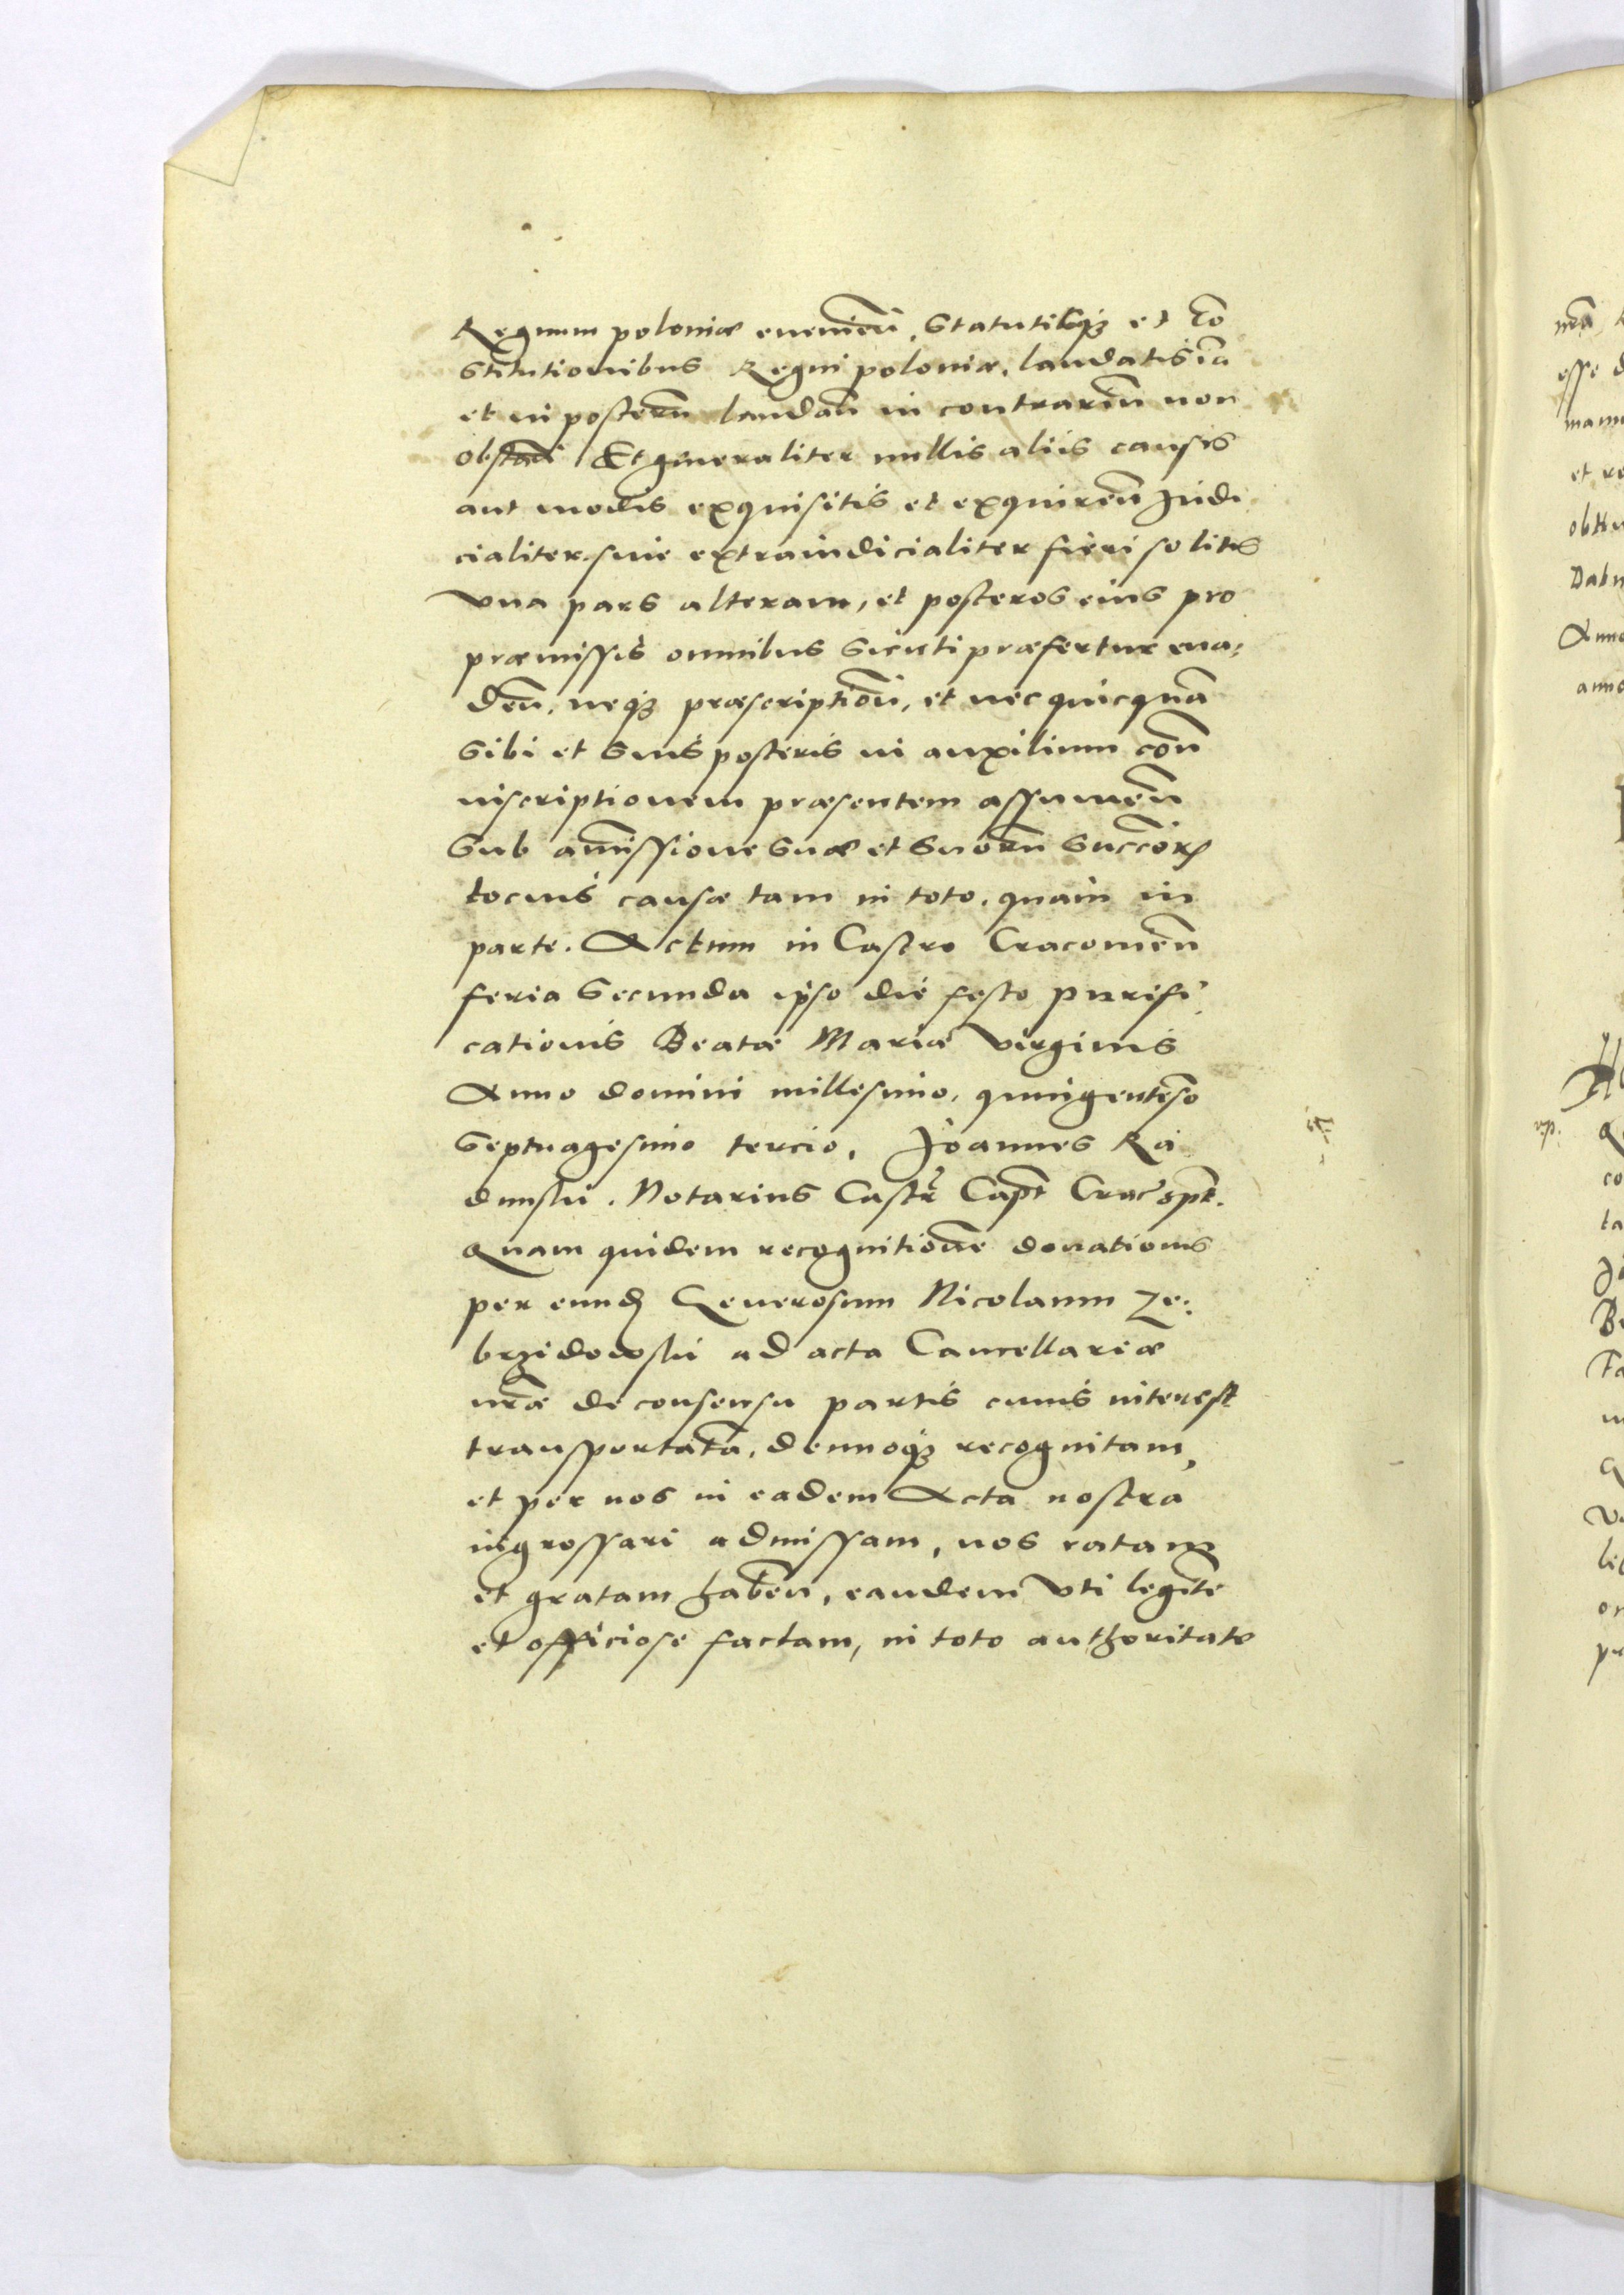 Regnum poloniæ euenien̄, Statutisq₃ et Co͞n
stitutionibus Regni poloniæ, laudatis ia͞
et in posteru͞ laudan̄ in contrariu͞ non
obstan̄ Et generaliter nullis aliis causis
aut modis exquisitis et exquiren̄ Judi
cialiter siue extraiudicialiter fieri solitis
Vna pars alteram, et posteros eius pro
præmissis omnibus Sicuti præfertur eua:
den̄, neq₃ præscription̄, et nec quicqua͞
Sibi et Suis posteris in auxilium con̄
inscriptionem præsentem assumen̄
Sub am̄issione Suæ et Suoru͞ Succ͞oꝝ
tocius causæ tam in toto, quam in
parte. Actum in Castro Cracouien̄
feria Secunda ipso die festo purifi
cationis Beatæ Mariæ Virginis
Anno domini millesimo, quingentes͞o
Septuagesimo tercio, Joannes Ra
dunski. Notarius Castr̄ Cap̄t Crac̄ sp̄t.
Quam quidem recognition͞e donationis
per eund̄ Generosum Nicolaum Ze:
brzidowski ad acta Cancellariæ
nr͞æ de consensu partis cuius interest
transportata͞, denuoq₃ recognitam,
et per nos in eadem Acta nostra
ingrossari admissam, nos ratam
et gratam haben̄, eandem Vti legit͞e
et officiose factam, in toto authoritate